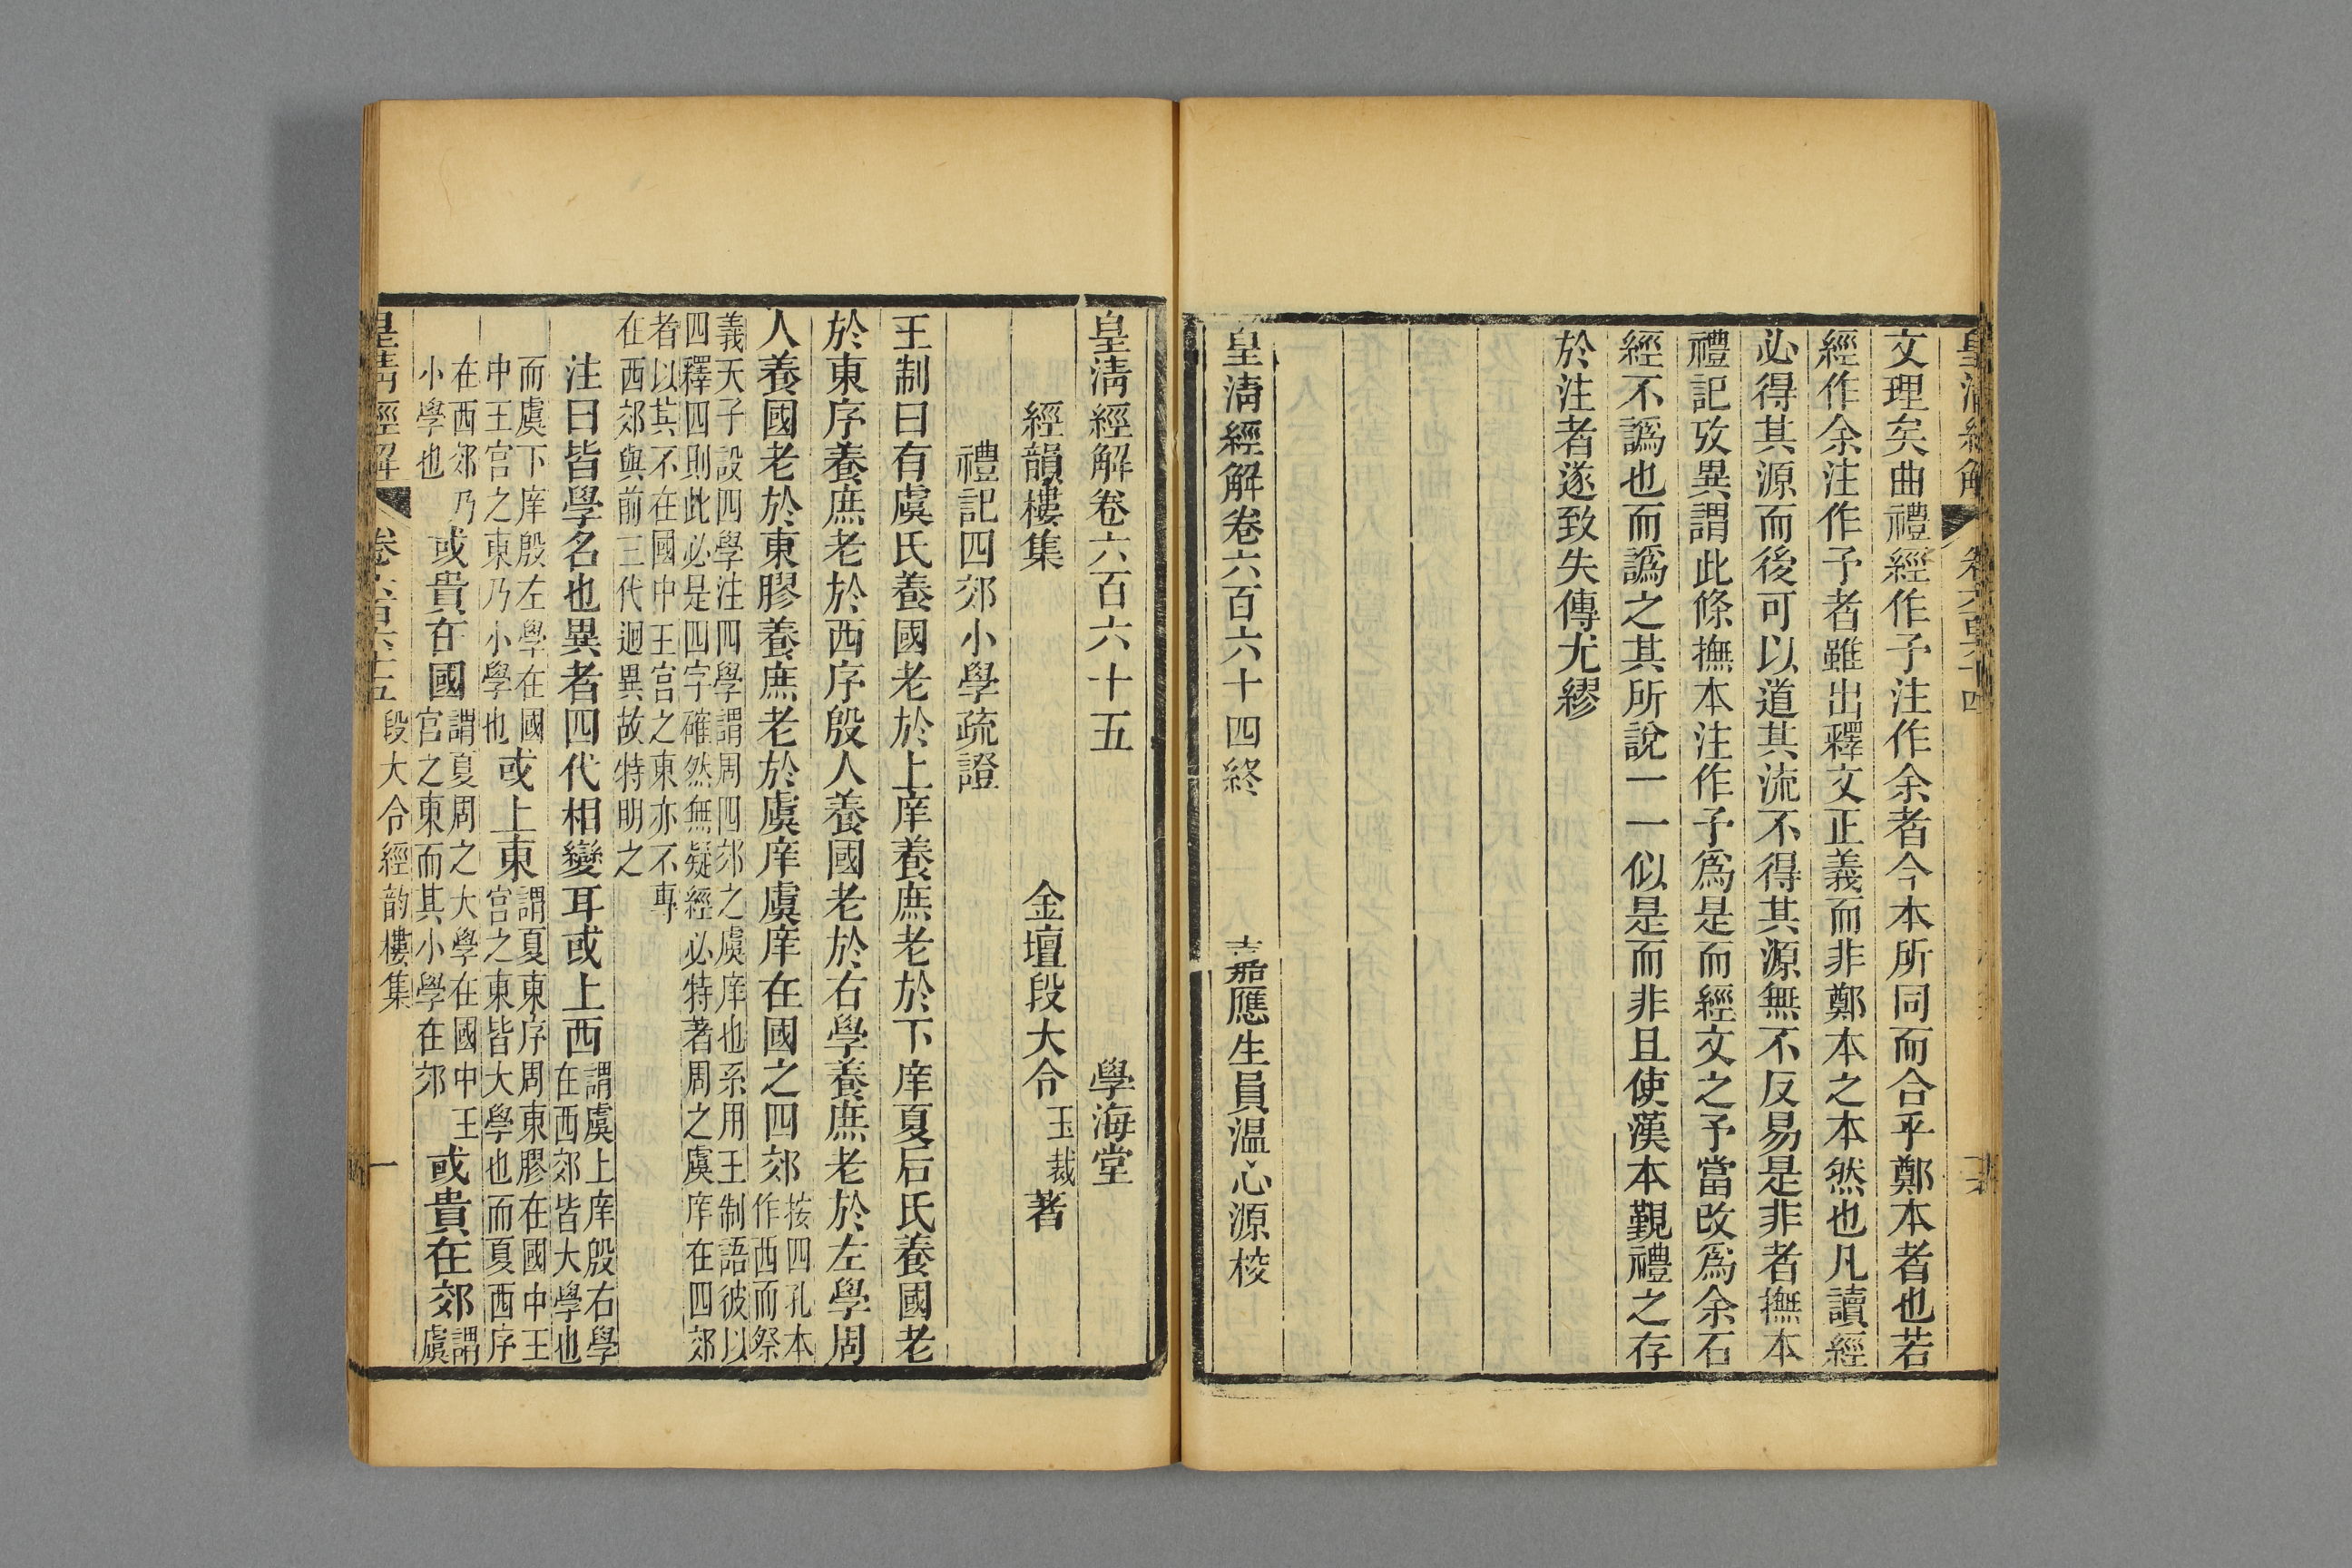 文理矣曲禮經作予注作余者今本所同而合乎鄭本者也若
經作余注作予者雖出釋文正義而非鄭本之本然也凡讀經
必得其源而後可以道其流不得其源無不反易是非者撫本
禮記攷異謂此條撫本注作予爲是而經文之予當改爲余石
經不譌也而譌之其所說一一似是而非且使漢本覲禮之存
於注者遂致失傳尤繆
皇清經解卷六百六十四終
嘉應生員溫心源校
皇清經解卷六百六十五
學海堂
經韻樓集
金壇段大令玉裁著
禮記四郊小學疏證
王制曰有虞氏養國老於上庠養庶老於下庠夏后氏養國老
於東序養庶老於西序殷人養國老於右學養庶老於左學周
人養國老於東膠養庶老於虞庠虞庠在國之四郊按四孔本作西而祭
義天子設四學注四學謂周四郊之虞庠也系用王制語彼以
四釋四則此必是四字確然無疑經必特著周之虞庠在四郊
者以其不在國中王宮之東亦不專
在西郊與前三代迥異故特明之
注曰皆學名也異者四代相變耳或上西謂虞上庠殷右學在西郊皆大學也
而虞下庠殷左學在國中王宮之東乃小學也或上東謂夏東序周東膠在國中王宮之東皆大學也而夏西序
在西郊乃小學也或貴在國謂夏周之大學在國中王宮之東而其小學在郊或貴在郊謂虞
皇清經解
卷六百六十五
段大令經韵樓集
一